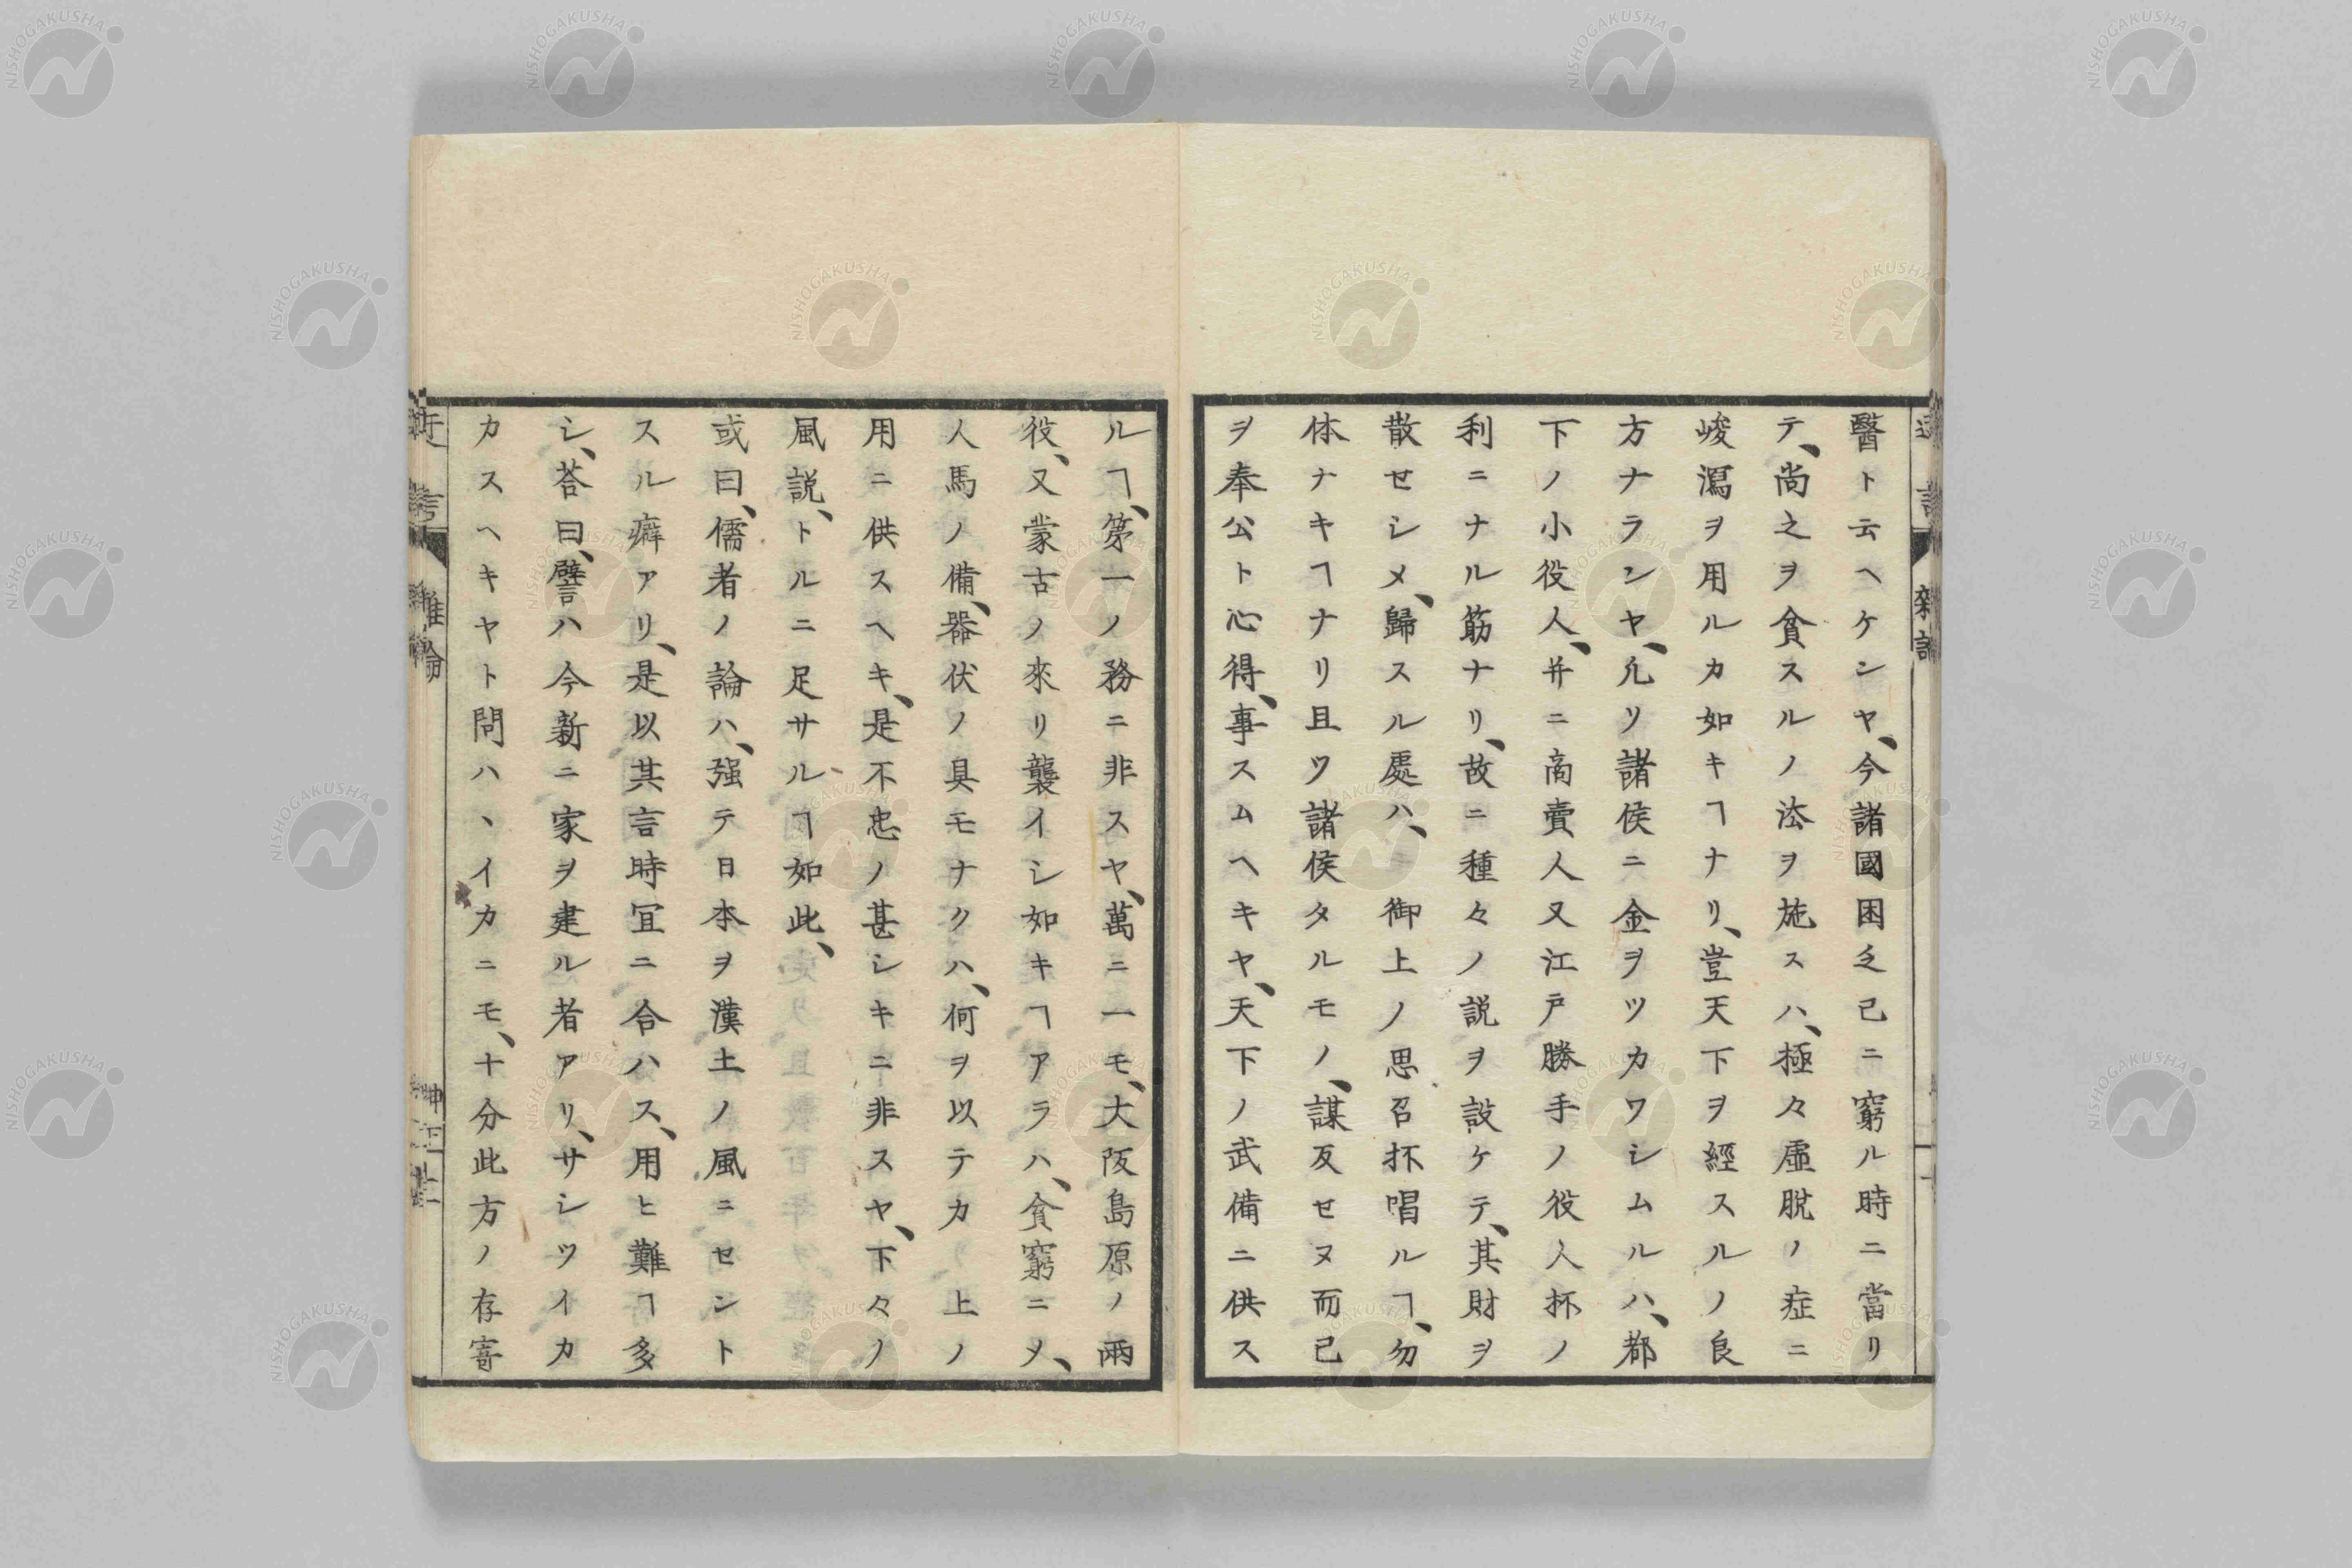 醫ト云ヘケンヤ、今諸國困乏已ニ窮ル時ニ當リ
テ、尚之ヲ貪スルノ法ヲ施スハ、極々虛脱ノ症ニ
峻瀉ヲ用ルカ如キヿナリ、豈天下ヲ經スルノ良
方ナランヤ、凡ソ諸侯ニ金ヲツカワシムルハ、都
下ノ小役人、幷ニ商賣人又江戸勝手ノ役人抔ノ
利ニナル筋ナリ、故ニ種々ノ説ヲ設ケテ、其財ヲ
散セシメ、歸スル處ハ、御上ノ思召抔唱ルヿ、勿
体ナキヿナリ且ツ諸侯タルモノ、謀反セヌ而已
ヲ奉公ト心得、事スムヘキヤ、天下ノ武備ニ供ス
ルヿ、第一ノ務ニ非スヤ、萬ニ一モ、大阪島原ノ兩
役、又蒙古ノ來リ襲イシ如キヿアラハ、貪窮ニメ、
人馬ノ備、器伏ノ具モナクハ、何ヲ以テカ上ノ
用ニ供スヘキ、是不忠ノ甚シキニ非スヤ、下々ノ
風説、トルニ足サルヿ如此、
或曰、儒者ノ論ハ、强テ日本ヲ漢土ノ風ニセント
スル癖アリ、是以其言時宜ニ合ハス、用ヒ難ヿ多
シ、荅曰、譬ハ今新ニ家ヲ建ル者アリ、サシツイカ
カスヘキヤト問ハヽイカニモ、十分此方ノ存寄
雜論
NISHOGAKUSHA